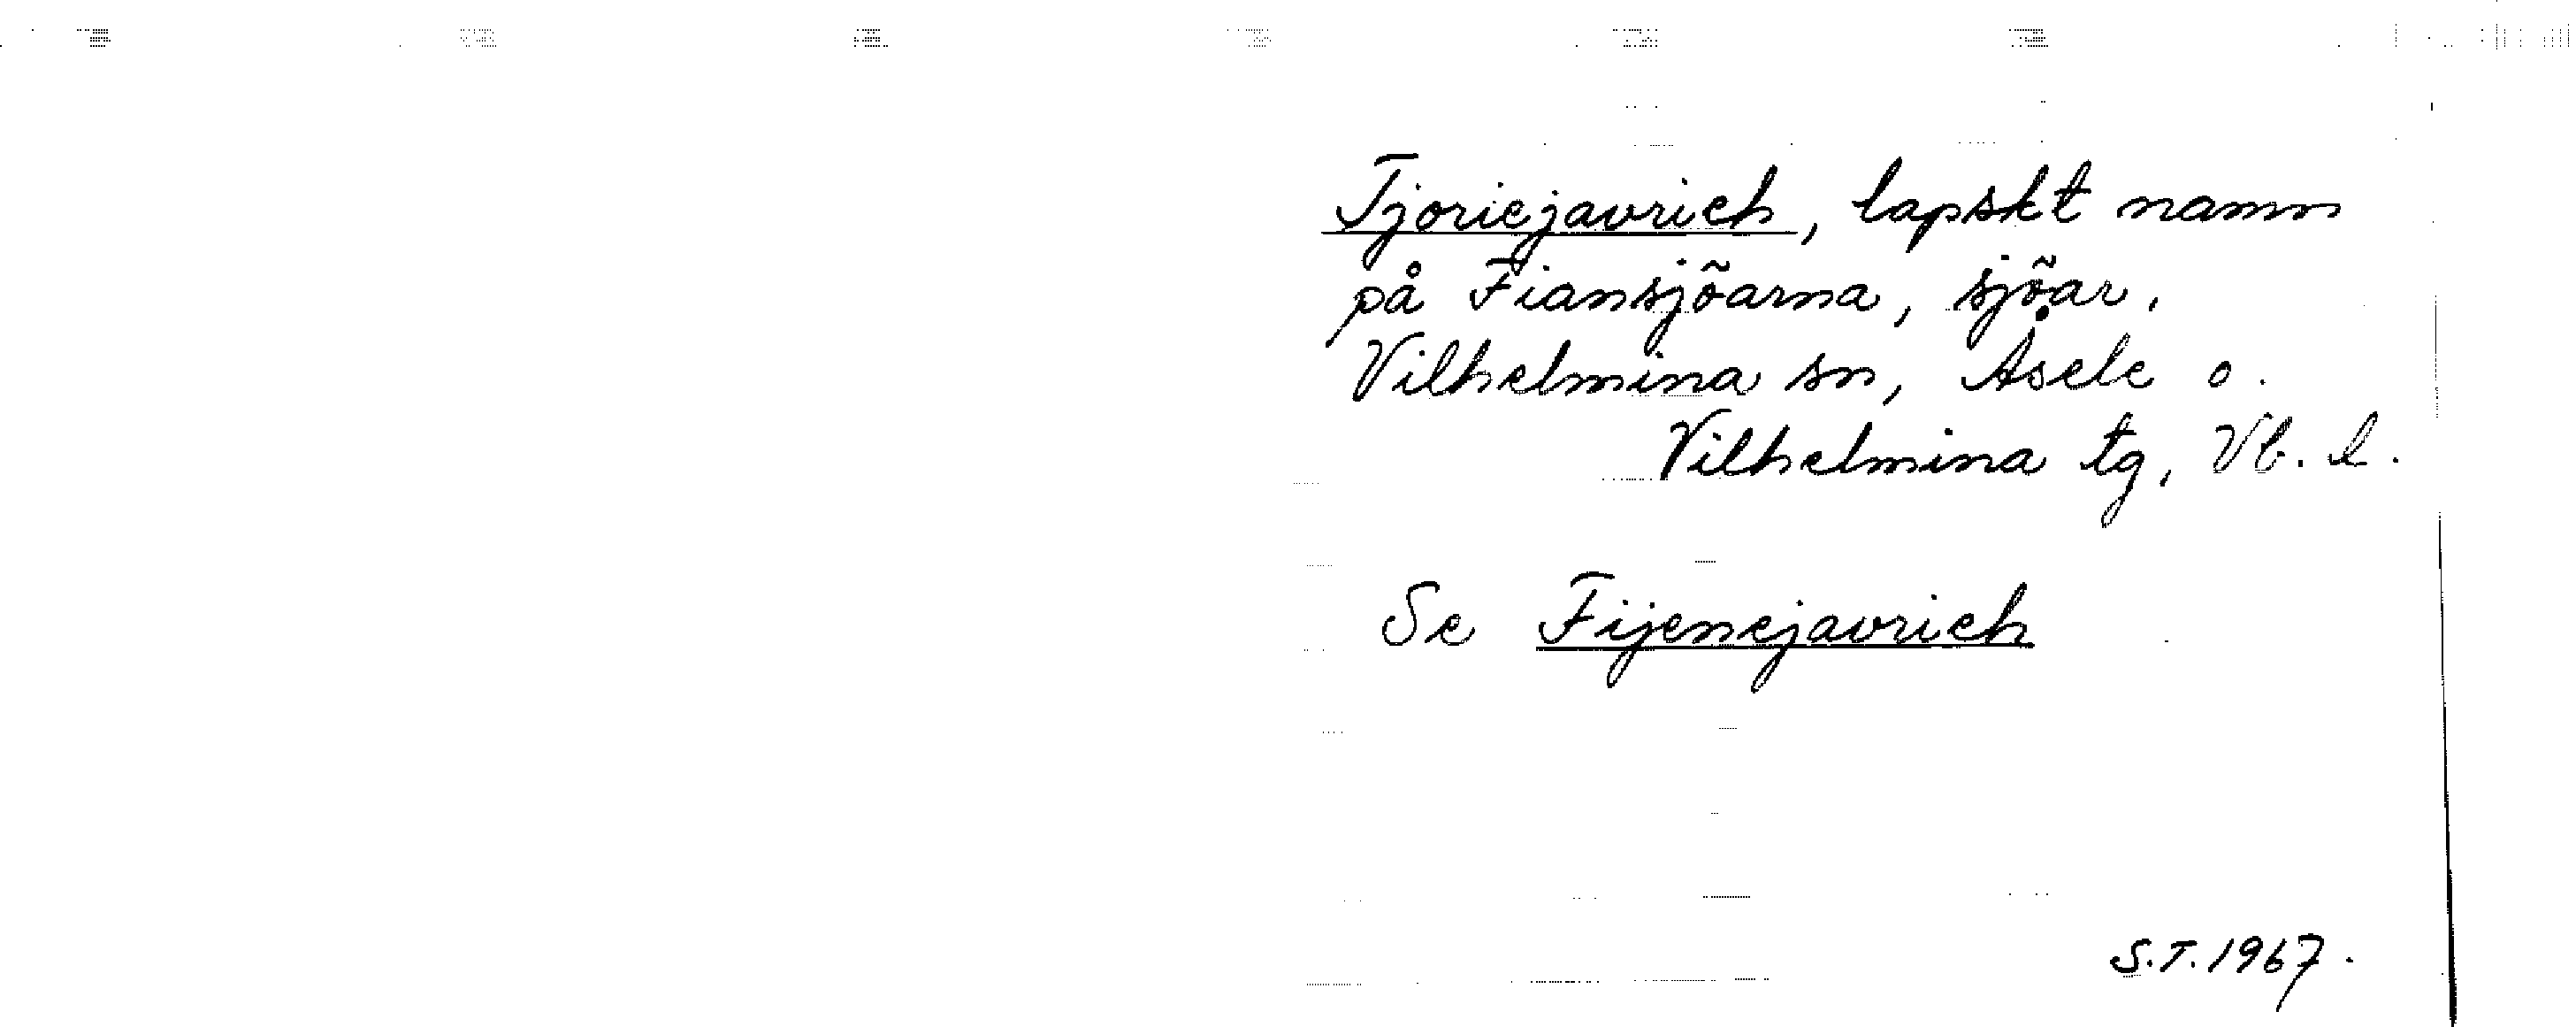 Tjoriejavrieh, lapskt namn
på Fiansjöarna, sjöar.
Vilhelmina sn, Åsele o.
Vilhelmina tg, Vb. l.
Se Fijenejavrieh
S.T. 1967.